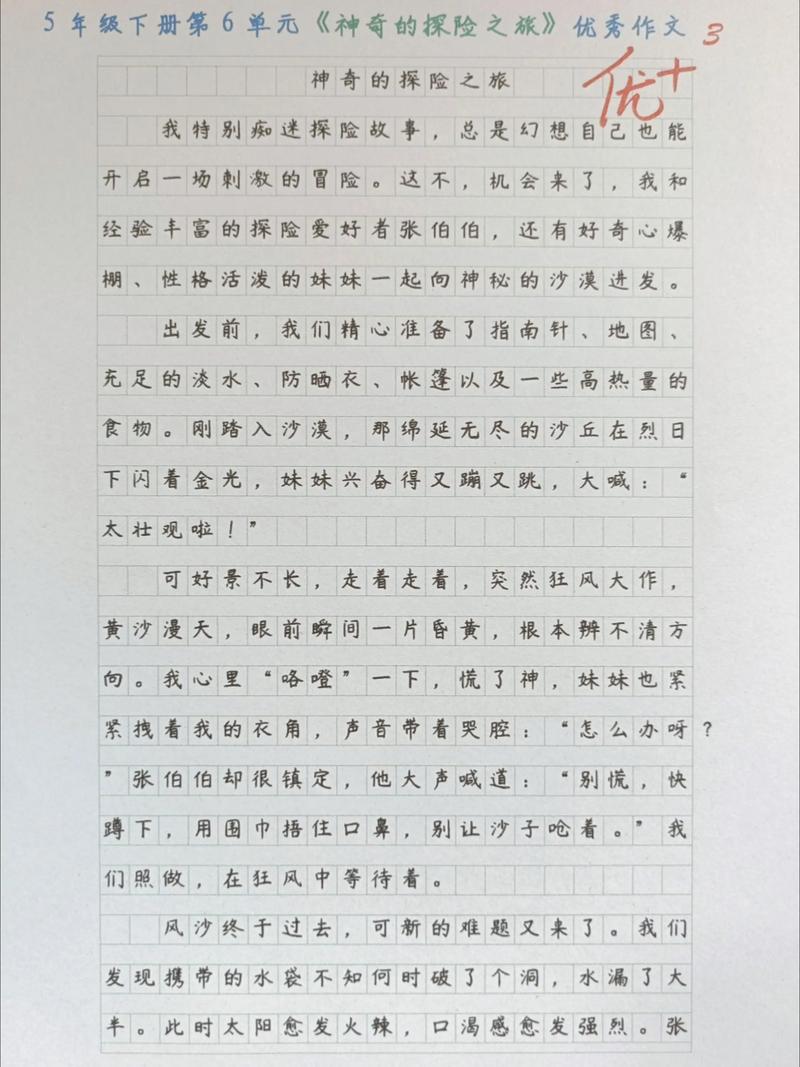 5年级下册第6单元《神奇的探险之旅》优秀作文 3
优+
神奇的探险之旅
我特别痴迷探险故事，总是幻想自己也能
开启一场刺激的冒险。这不，机会来了，我和
经验丰富的探险爱好者张伯伯，还有好奇心爆
棚、性格活泼的妹妹一起向神秘的沙漠进发。
出发前，我们精心准备了指南针、地图、
充足的淡水、防晒衣、帐篷以及一些高热量的
食物。刚踏入沙漠，那绵延无尽的沙丘在烈日
下闪着金光，妹妹兴奋得又蹦又跳，大喊：“
太壮观啦！”
可好景不长，走着走着，突然狂风大作，
黄沙漫天，眼前瞬间一片昏黄，根本辨不清方
向。我心里“咯噔”一下，慌了神，妹妹也紧
紧拽着我的衣角，声音带着哭腔：“怎么办呀？
”张伯伯却很镇定，他大声喊道：“别慌，快
蹲下，用围巾捂住口鼻，别让沙子呛着。”我
们照做，在狂风中等待着。
风沙终于过去，可新的难题又来了。我们
发现携带的水袋不知何时破了个洞，水漏了大
半。此时太阳愈发火辣，口渴感愈发强烈。张